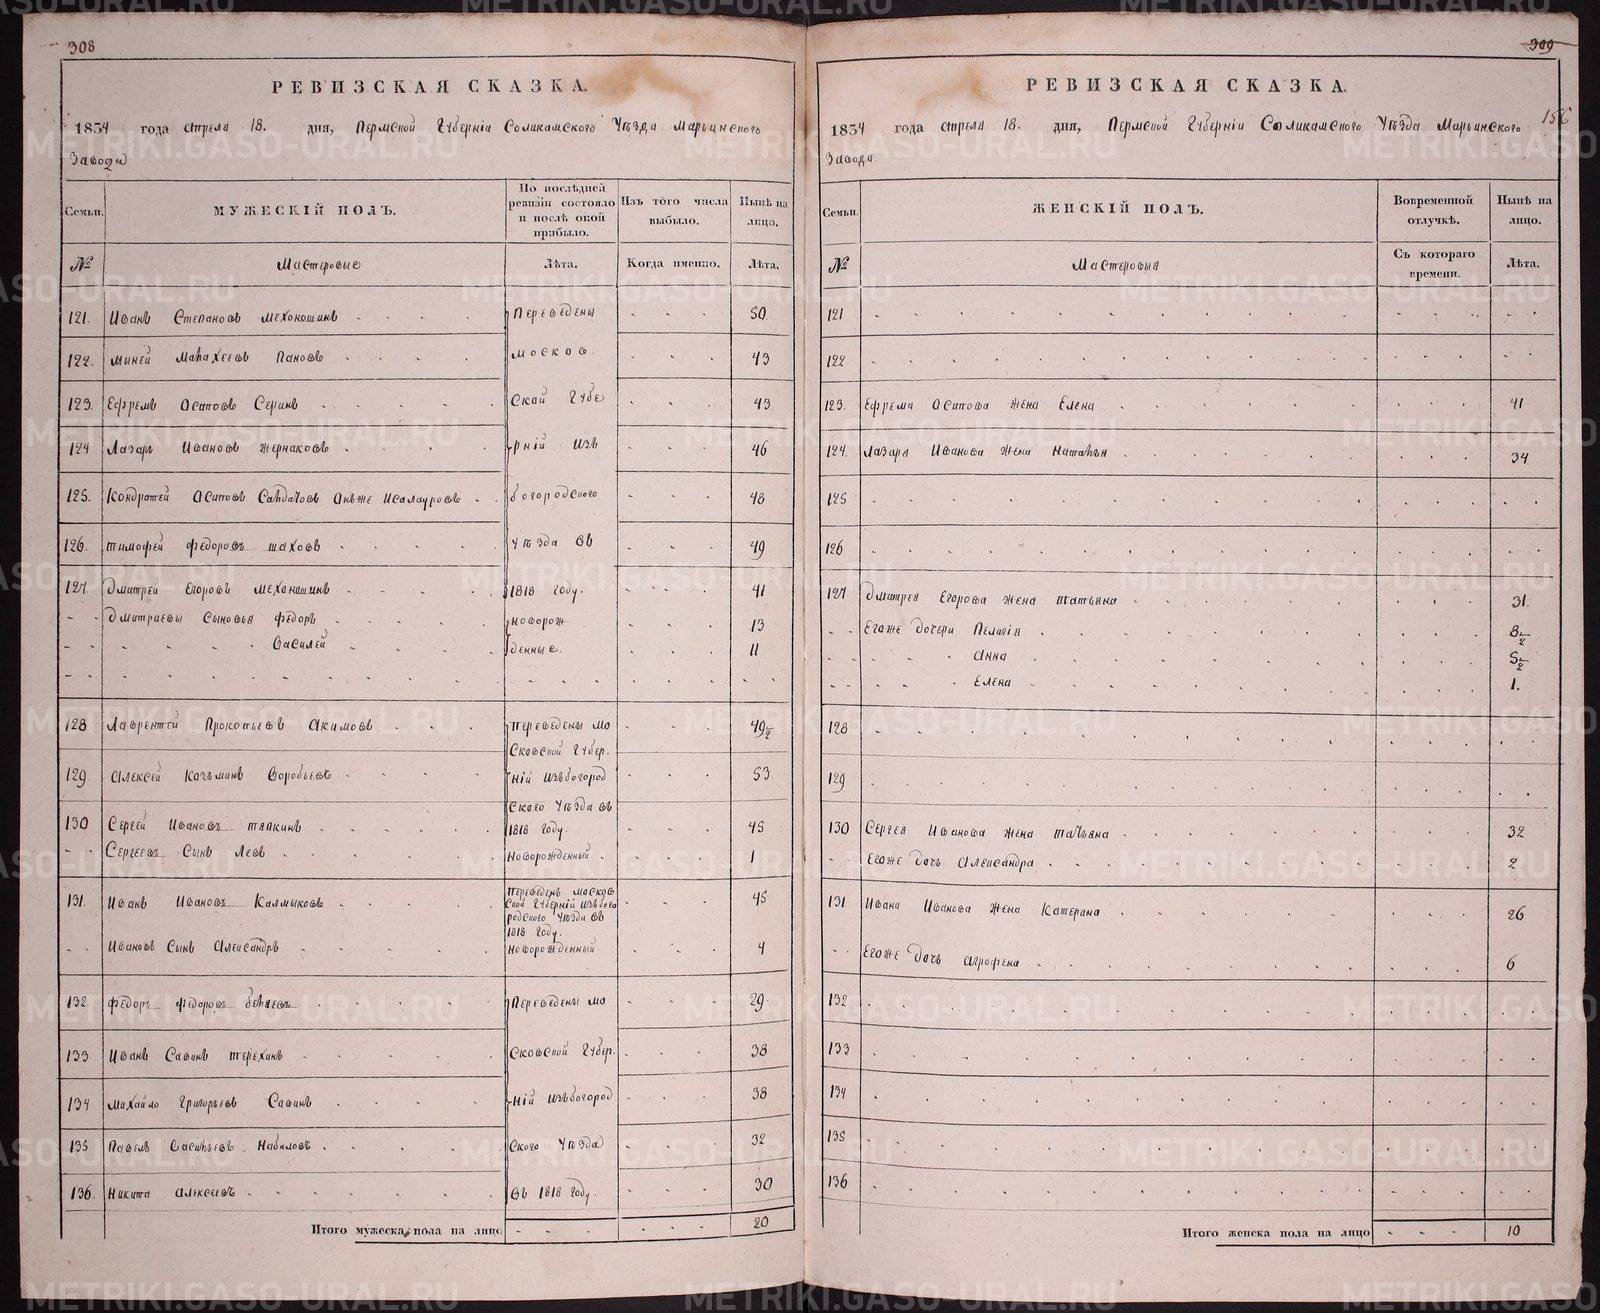 308
РЕВИЗСКАЯ СКАЗКА.
1834 года апреля 18. дня, Пермской Губерніи Соликамского Уѣзда Марьинского
Завода
Семьи. МУЖЕСКІЙ ПОЛЪ. По послѣдней ревизіи состояло и послѣ оной прибыло. Изъ того числа выбыло. Нынѣ на лицо.
№ Мастеровые Лѣта. Когда именно. Лѣта.
121. Иванъ Степановъ Мехоношинъ Переведены 50
122. Миней Панова Москов. 43
123. Ефремъ Осиповъ Серинъ Ской Губе 43
124 Лазарь Ивановъ Жернаковъ рній изъ 46
125. Кондратей Осиповъ онъже богородского 48
126. Тимофей Федоровъ Шаховъ Уѣзда въ 49
127. Дмитрей Егоровъ Мехоношинъ 1818 году. 41
Дмитриевы Сыновья Федоръ новорож 13
Василей денные. 11
128 Лаврентей Прокопьевъ Акимовъ Переведены мо 49½
Сковской Губер.
129. Алексей Козьминъ Воробьевъ ній изъбогород 53
Ского Уѣзда въ
130 Сергей Ивановъ Тяпкинъ 1818 году. 45
Сергеевъ Сынъ Левъ Новорожденный 1
131. Иванъ Ивановъ Калмыковъ Переведенъ москов 45
Ской Губерній изъбого
родского Уѣзда въ
1818 году.
Ивановъ Сынъ Александръ Новорожденный 4
132 Федоръ Федоровъ Беляевъ Переведены мо 29
133 Иванъ Савинъ Терехинъ Сковской Губер. 38
134 Михайло Григорьевъ Савинъ ній изъбогород 38
135 Павелъ Васильевъ Набиловъ Ского Уѣзда 32
136. Никита Алексеевъ Въ 1818 году. 30
Итого мужеска пола на лицо 20
309
156
РЕВИЗСКАЯ СКАЗКА.
1834 года апреля 18. дня, Пермской Губерніи Соликамского Уѣзда Марьинского
Завода.
Семьи. ЖЕНСКІЙ ПОЛЪ. Вовременной отлучкѣ. Нынѣ на лицо.
№ Мастеровыя Съ котораго времени. Лѣта.
121
122
123. Ефрема Осипова жена Елена 41
124. Лазаря Иванова Жена Наталья 34
125
126
127 Дмитрея Егорова жена Татьяна 31.
Егоже дочери Пелагія 8½
Анна 5½
Елена 1.
128
129
130 Сергея Иванова жена Татьяна 32
Егоже дочь Александра 2
131 Ивана Иванова Жена Катерина 26
Егоже дочь Агрофена 6
132
133
134
135
136
Итого женска пола на лицо 10
METRIKI.GASO-URAL.RU